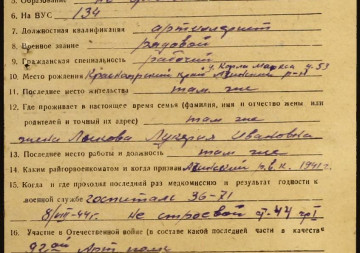 6. На ВУС 134
7. Должностная квалификация артиллерист
8. Военное звание рядовой
9. Гражданская специальность рабочий
Карла Маркса д. 53
10. Место рождения Красноярский край Ачинский р-н
11. Последнее место жительства там же
12. Где проживает в настоящее время семья (фамилия, имя и отчество жены или
родителей и точный их адрес) там же
жена Лукерья Ивановна
13. Последнее место работы и должность там же
14. Каким райгорвоенкоматом и когда призван Ачинский р.в.к. 1941 г.
15. Когда и где проходил последний раз медкомиссию и результат годности к
военной службе госпиталь 36-71
8/VIII-44г. не строевой
16. Участие в Отечественной войне (в составе какой последней части в качестве
Арт полк